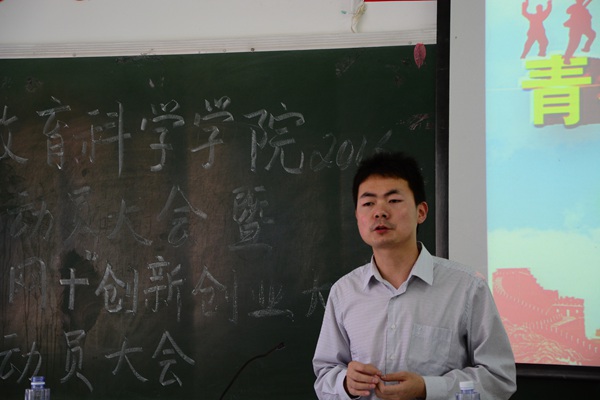 教育科学学院2016
动员大会暨
网+创新创业大
动员大会
青